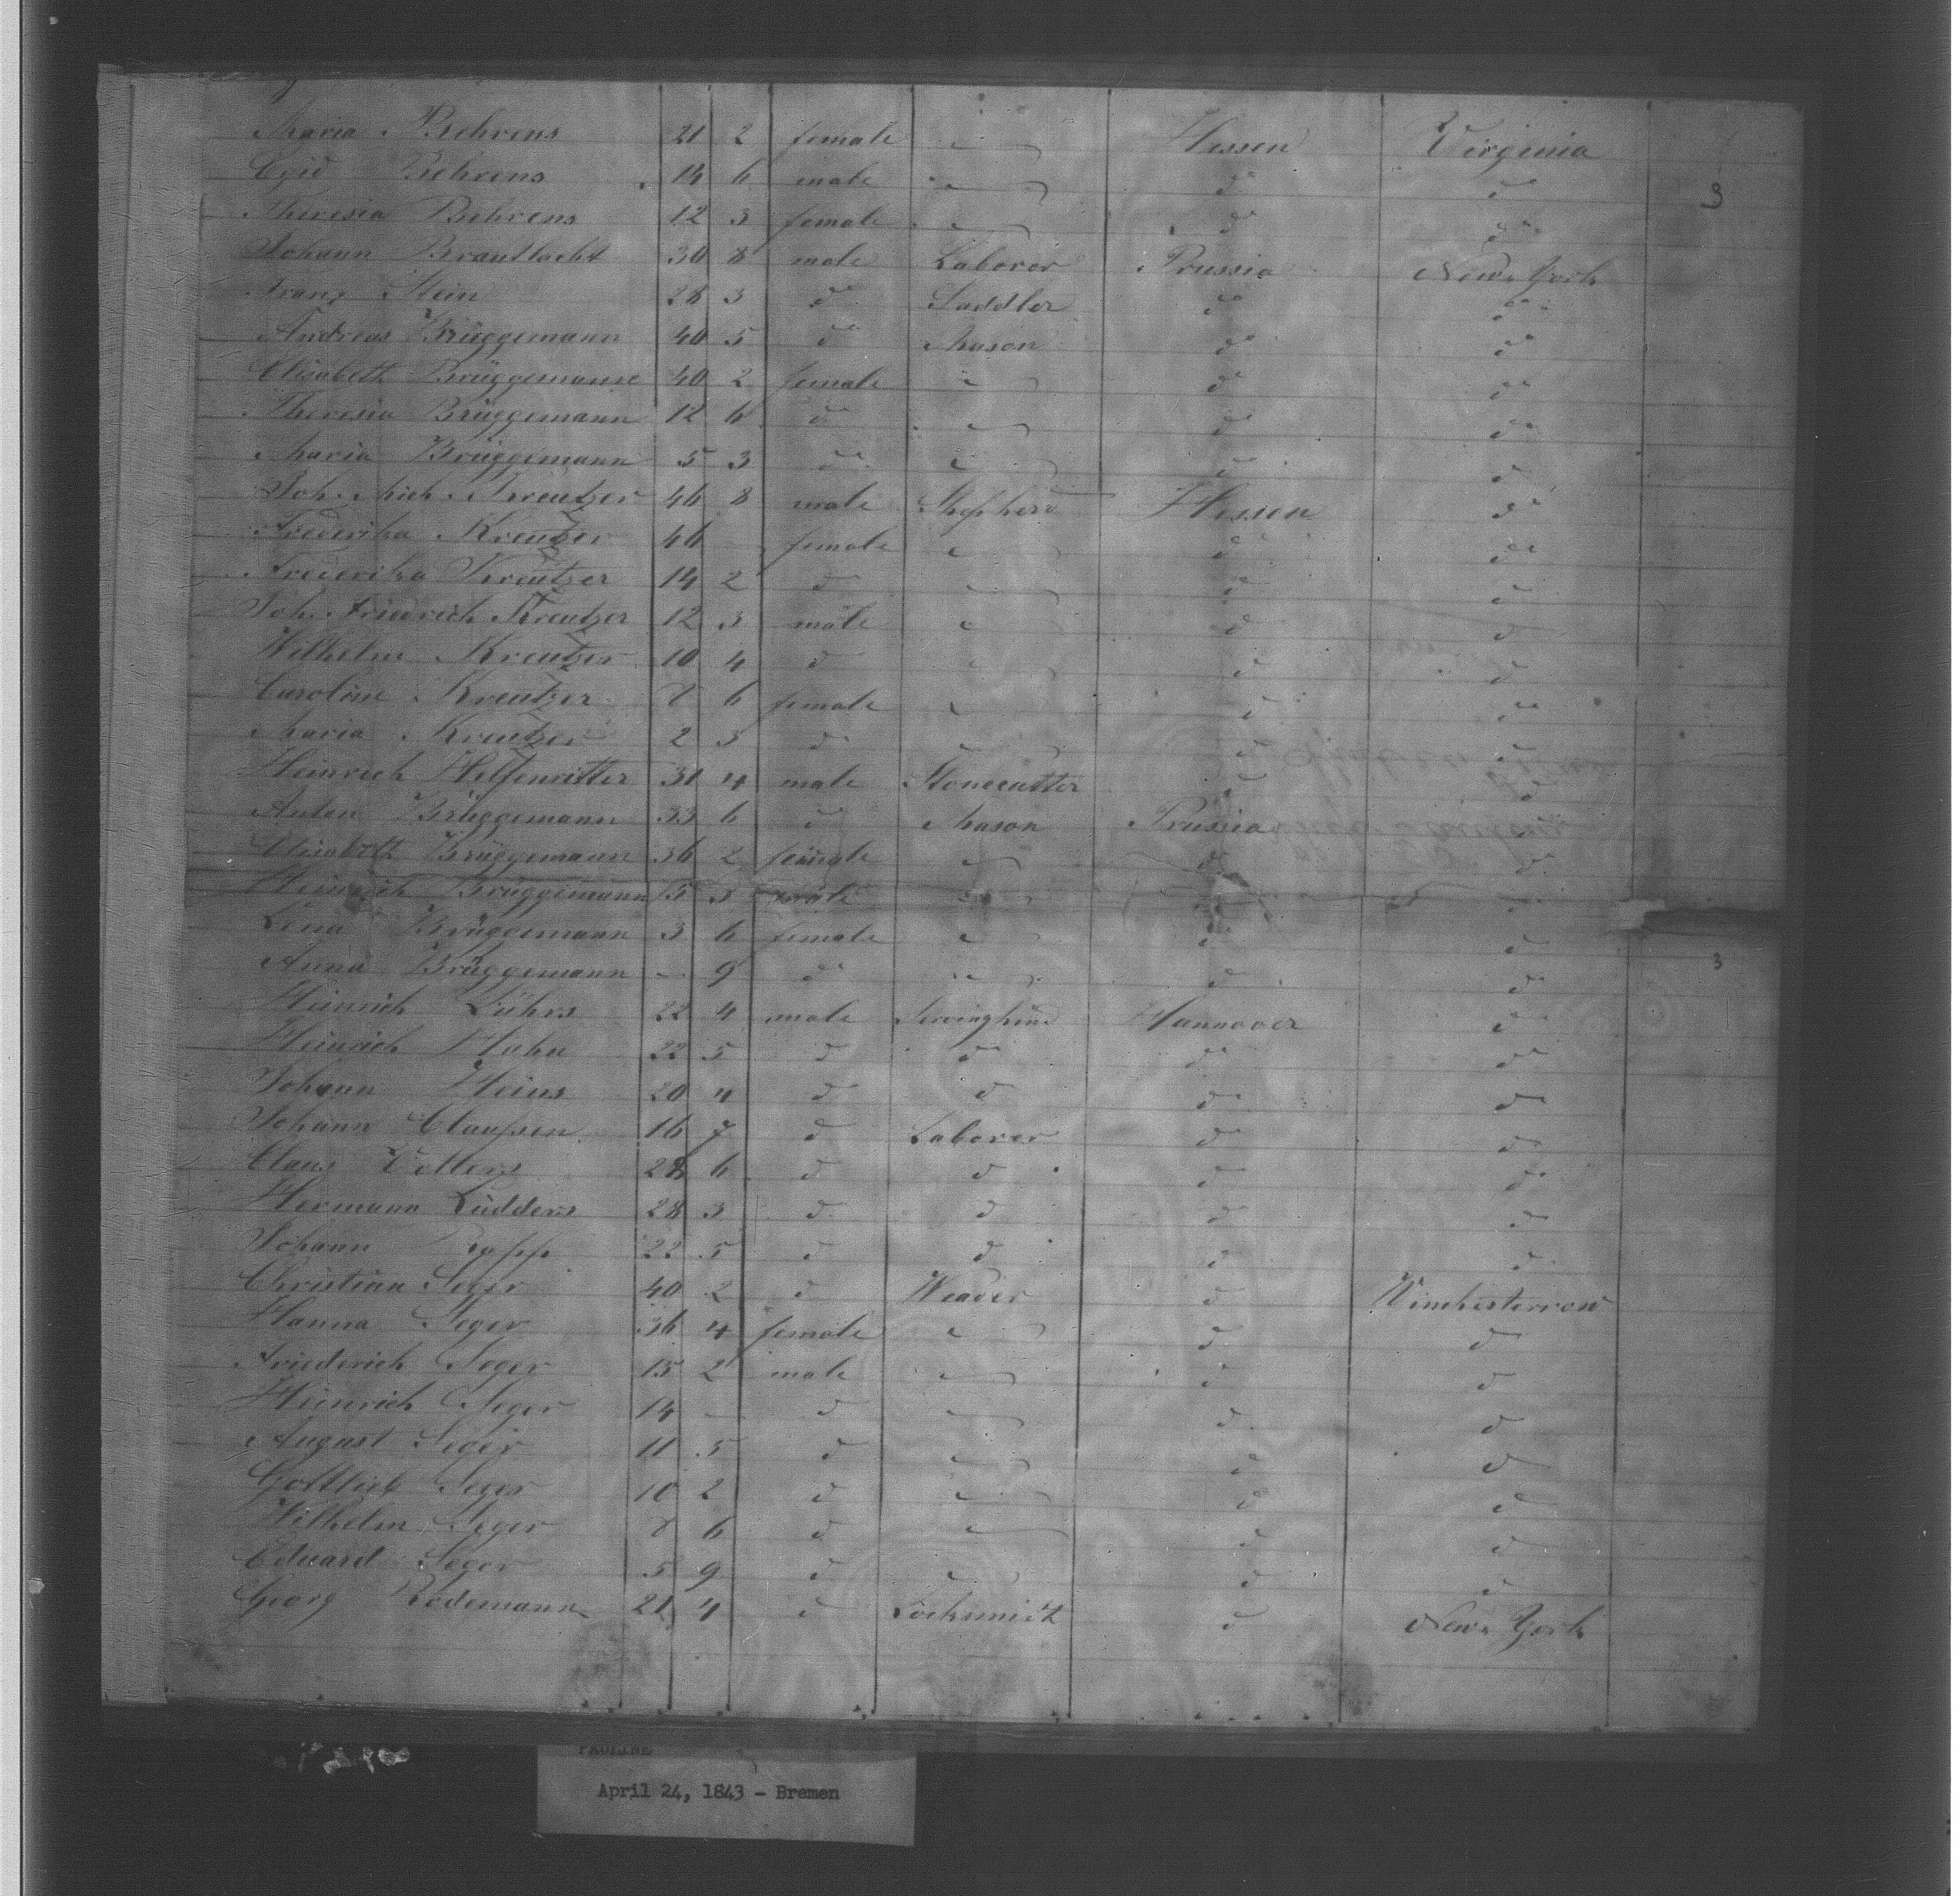 Maria Behrens 21 2 female — Hessen Virginia
Egid Behrens 14 6 male — do do
3
Theresia Behrens 12 3 female — do do
Johann Brautlacht 30 8 male Laborer Prussia New York
Franz Stein 28 3 do Saddler do do
Andreas Brüggemann 40 5 do Mason do do
Elisabeth Brüggemann 40 2 female — do do
Theresia Brüggemann 12 6 do — do do
Maria Brüggemann 5 3 do — do do
Joh. Mich. Kreutzer 46 8 male Shepherd Hessen do
Frederika Kreutzer 46 female — do do
Freierika Kreutzer 14 2 do — do do
Joh. Friedrich Kreutzer 12 3 male — do do
Wilhelm Kreutzer 10 4 do — do do
Caroline Kreutzer 8 6 female — do do
Maria Kreutzer 2 3 do — do do
Heinrich Helfenritter 31 4 male Stonecutter do do
Anton Brüggemann 33 6 do Mason Prussia do
Elisabeth Brüggemann 36 2 female — do do
Heinrich Brüggemann 5 3 male — do
Lena Brüggemann 3 6 female — do do
Anna Brüggemann — 9 do — do do
3
Heinrich Lührs 22 4 male Hannover do
Heinrich Hahn 22 5 do do do do
Johann Heins 20 4 do do do do
Johann Claussen 16 7 do Laborer do do
Claus 28 6 do do do do
Hermann Lüdders 28 3 do do do do
Johann 22 5 do do do do
Christian Seger 40 2 do Weaver do
Hanna Seger 36 4 female — do do
Friederich Seger 15 2 male — do do
Heinrich Seger 14 — do — do do
August Seger 11 5 do — do do
Gottlieb Seger 10 2 do — do do
Wilhelm Seger 8 6 do — do do
Eduard Seger 5 9 do — do do
Georg Rodemann 21 4 do do New York
PAULINE
April 24, 1843 - Bremen